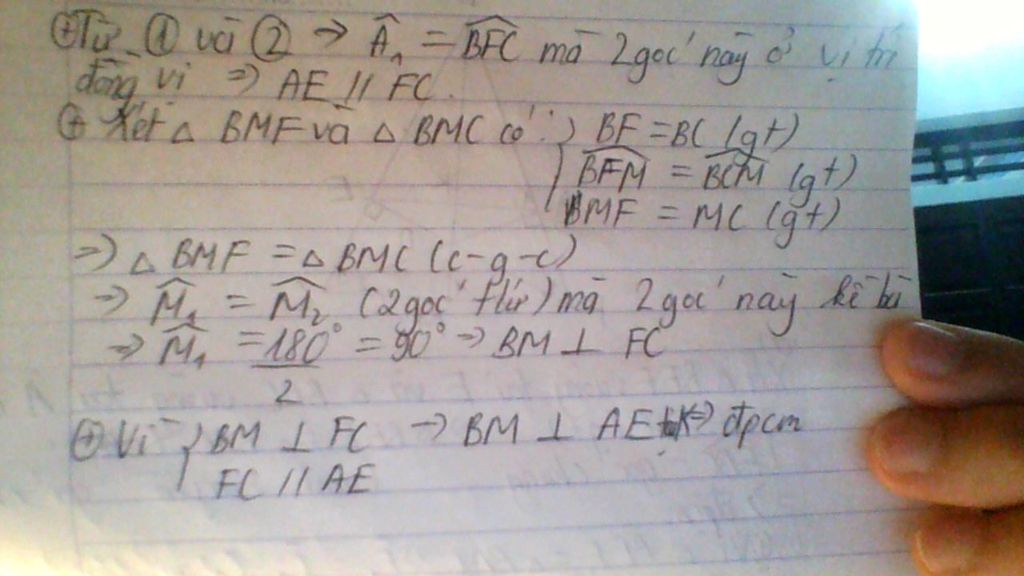 ⊕ Từ ① và ② ⇒ Â₁ = BFC mà 2 góc này ở vị trí
đồng vị ⇒ AE // FC.
⊕ Xét △ BMF và △ BMC có: } BF = BC (gt)
BFM = BCM (gt)
MF = MC (gt)
⇒ △ BMF = △ BMC (c-g-c)
⇒ M̂₁ = M̂₂ (2 góc t/ứ) mà 2 góc này kề bù
⇒ M̂₁ = 180°/2 = 90° ⇒ BM ⊥ FC
⊕ Vì { BM ⊥ FC → BM ⊥ AE ⇒ đpcm
FC // AE